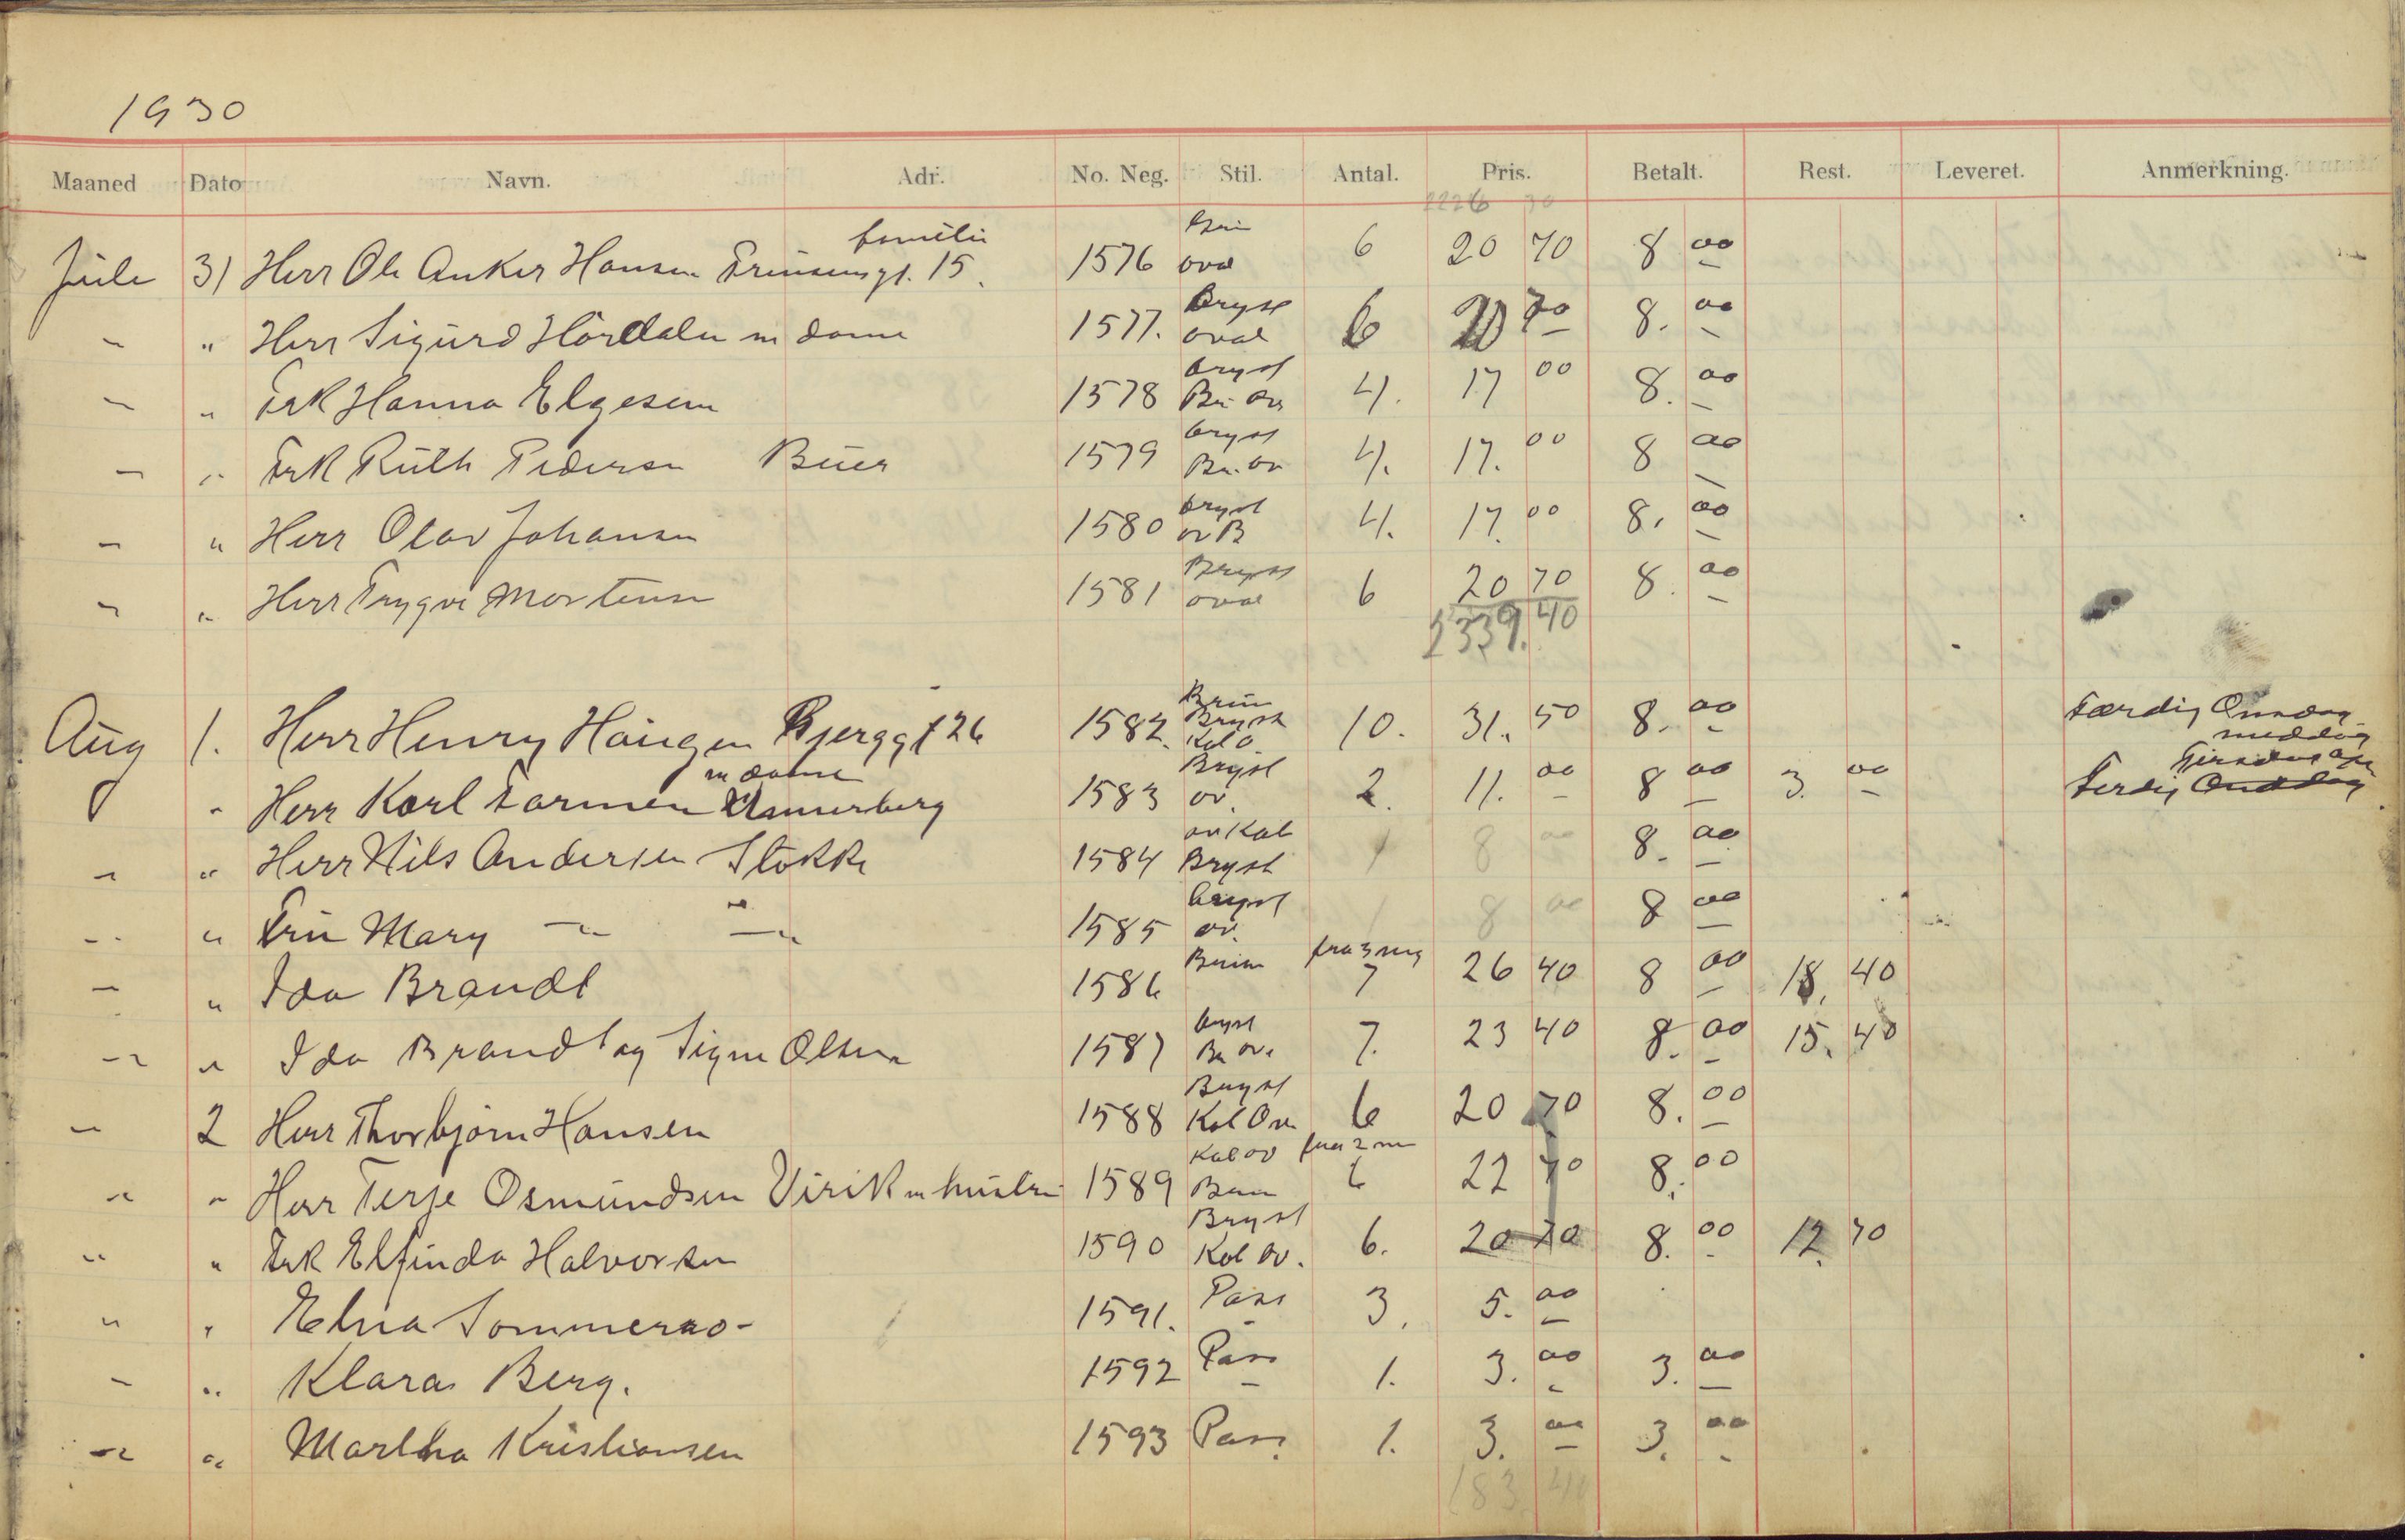 1930
Maaned Dato Navn. Adr. No. Neg. Stil. Antal. Pris. Betalt. Rest. Leveret. Anmerkning.
2226 30
familie
Juli 31 Herr Ole Anker Hansen Prinsensgt. 15. 1576 oval 6 20 70 8 00
" Herr Sigurd Hördalen m dame 1577. Bryst oval 6 20 70 8. 00
" Frk Hanna Elgesem 1578 bryst Br. ov 4. 17 00 8. 00
" Frk Ruth Pedersen Buer 1579 bryst Br. ov 4. 17. 00 8 00
" Herr Olav Johansen 1580 bryst ov B 4. 17. 00 8. 00
" Herr Trygve Mortensen 1581 Bryst oval 6 20 70 8. 00
2339. 40
Aug 1. Herr Henry Haugen Bjerggt 26 1582. Brun Bryst Kol o. 10. 31. 50 8. 00 Færdig Onsdag middag
" Herr Karl Farmen m dame 1583 Bryst ov. 2. 11. 00 8 00 3. 00 Ferdig
" Herr Nils Andersen Stokke 1584 ov Kol Bryst 1 8 00 8. 00
" Fru Mary — " — " 1585 bryst ov. 1 8 00 8 00
" Ida Brandt 1586 Brun fra 3 neg 7 26 40 8 00 18. 40
" Ida Brandt og Signe Olsen 1587 bryst Br ov. 7. 23 40 8. 00 15. 40
2 Herr Thorbjørn Hansen 1588 Bryst Kol Ov 6 20 70 8. 00
" Herr Terje Osmundsen Virik m hustru 1589 Kol ov Brun fra 2 ne 6 22 70 8. 00
" Frk Elfinda Halvorsen 1590 Bryst Kol ov. 6. 20 70 8. 00 12. 70
" Elna Sommerro- 1591. Pass 3. 5. 00
" Klara Berg. 1592 Pass 1. 3. 00 3. 00
" Martha Kristiansen 1593 Pass. 1. 3. 00 3. 00
183 40